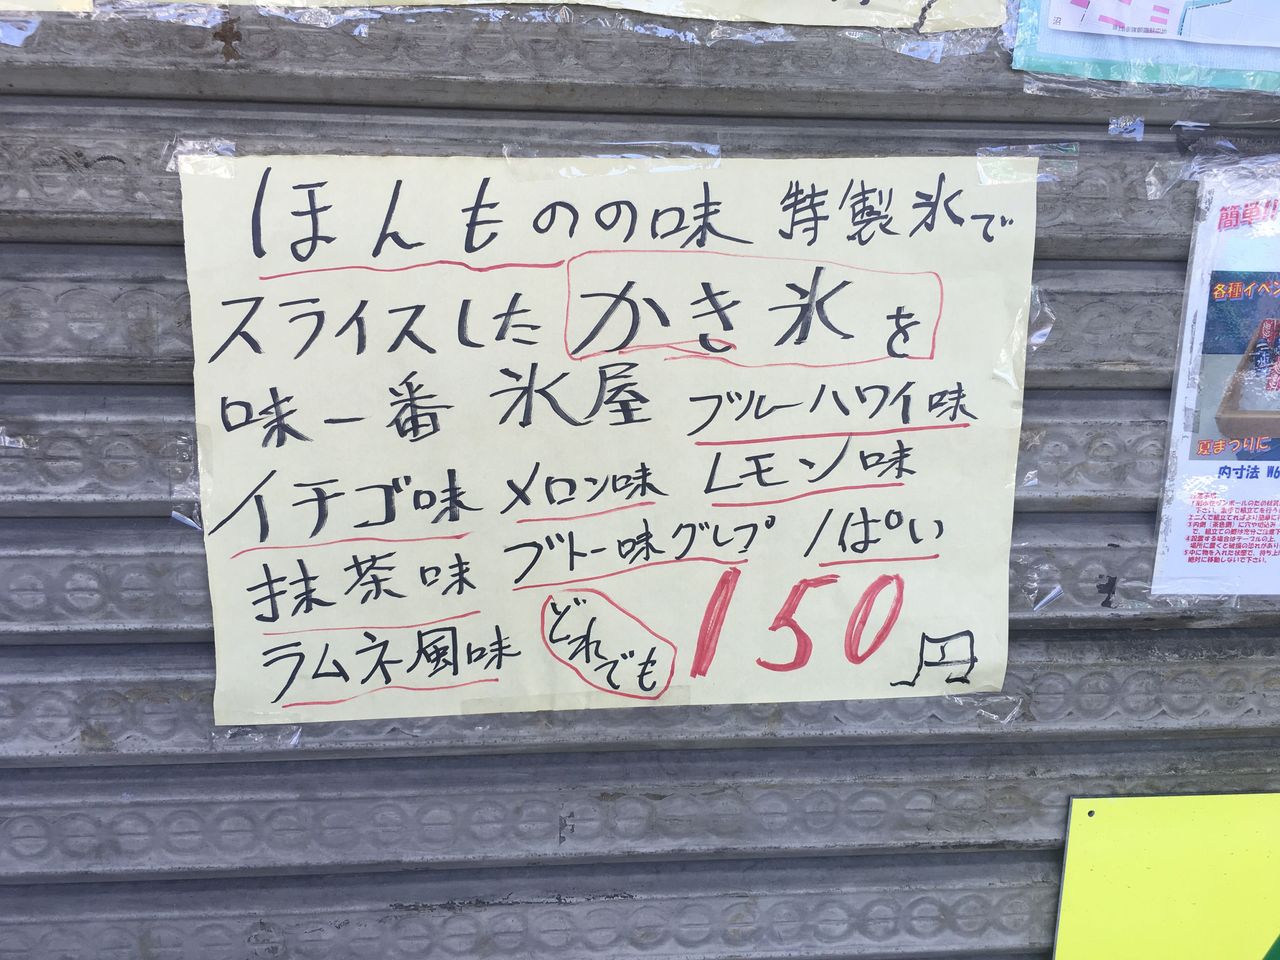 ほんものの味 特製氷で
スライスした かき氷を
味一番 氷屋 ブルーハワイ味
イチゴ味 メロン味 レモン味
抹茶味 ブトー味グレプ 1ぱい
ラムネ風味 どれでも 150円
簡単
各種イベン
夏まつりに
内寸法 W6